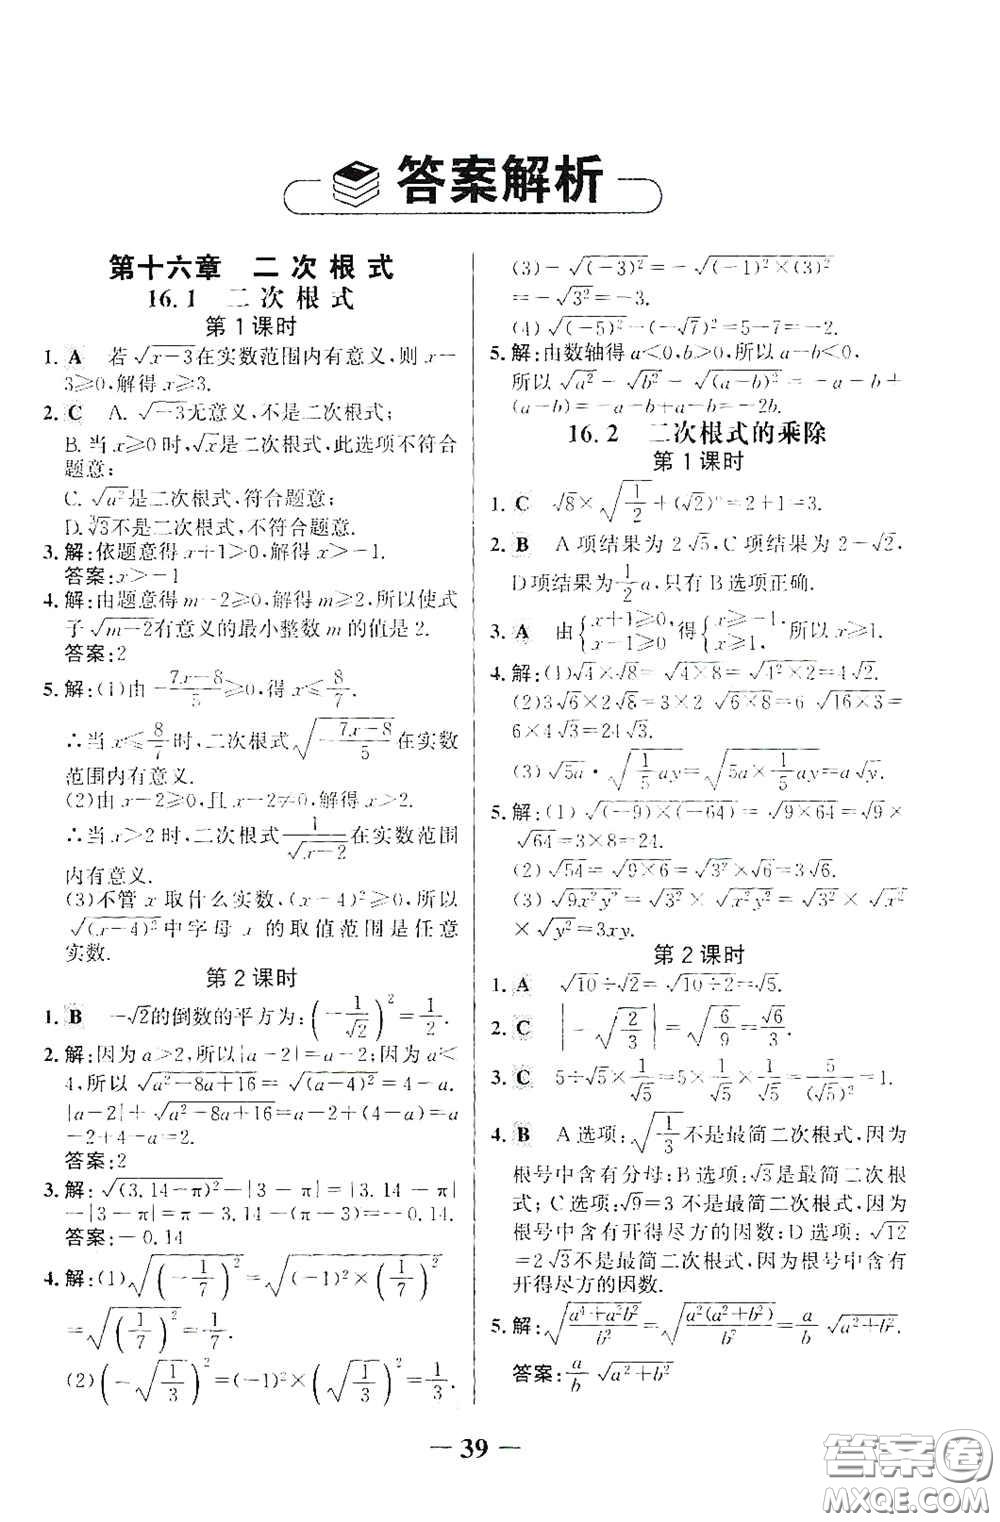 答案解析
第十六章 二次根式
16.1 二次根式
第1课时
1. A 若√(x-3)在实数范围内有意义,则 x-
3≥0,解得 x≥3.
2. C A. √(-3)无意义,不是二次根式;
B. 当 x≥0 时,√x是二次根式,此选项不符合
题意;
C. √(a²)是二次根式,符合题意;
D. ∛3不是二次根式,不符合题意.
3. 解:依题意得 x+1>0,解得 x>-1.
答案:x>-1
4. 解:由题意得 m-2≥0,解得 m≥2,所以使式
子√(m-2)有意义的最小整数 m 的值是 2.
答案:2
5. 解:(1)由 -(7x-8)/5≥0,得 x≤8/7.
∴当 x≤8/7时,二次根式√(-(7x-8)/5)在实数
范围内有意义.
(2)由 x-2≥0,且 x-2≠0,解得 x>2.
∴当 x>2 时,二次根式1/√(x-2)在实数范围
内有意义.
(3)不管 x 取什么实数,(x-4)²≥0,所以
√((x-4)²)中字母 x 的取值范围是任意
实数.
第2课时
1. B -√2的倒数的平方为:(-1/√2)²=1/2.
2. 解:因为 a>2,所以|a-2|=a-2;因为 a<
4,所以 √(a²-8a+16)=√((a-4)²)=4-a.
|a-2|+√(a²-8a+16)=a-2+(4-a)=a
-2+4-a=2.
答案:2
3. 解:√((3.14-π)²)-|3-π|=|3.14-π|
-|3-π|=π-3.14-(π-3)=-0.14.
答案:-0.14
4. 解:(1)√((-1/7)²)=√((-1)²×(1/7)²)
=√((1/7)²)=1/7.
(2)(-√(1/3))²=(-1)²×(√(1/3))²=1/3.
(3)-√((-3)²)=-√((-1)²×(3)²)
=-√(3²)=-3.
(4)√((-5)²)-(-√7)²=5-7=-2.
5. 解:由数轴得 a<0,b>0,所以 a-b<0,
所以 √(a²)-√(b²)-√((a-b)²)=-a-b+
(a-b)=-a-b+a-b=-2b.
16.2 二次根式的乘除
第1课时
1. C √8×√(1/2)+(√2)⁰=2+1=3.
2. B A项结果为 2√5,C项结果为 2-√2,
D项结果为1/2a,只有 B选项正确.
3. A 由{x+1≥0, x-1≥0得{x≥-1, x≥1, 所以 x≥1.
4. 解:(1)√4×√8=√(4×8)=√(4²×2)=4√2.
(2)3√6×2√8=3×2 √(6×8)=6 √(16×3)=
6×4√3=24√3.
(3)√(5a)·√(1/5ay)=√(5a×1/5ay)=a√y.
5. 解:(1)√((-9)×(-64))=√(9×64)=√9×
√64=3×8=24.
(2)√54=√(9×6)=√(3²)×√6=3√6.
(3)√(9x²y²)=√(3²)×√(x²y²)=√(3²)×√(x²)
×√(y²)=3xy.
第2课时
1. A √10÷√2=√(10÷2)=√5.
2. C |-√(2/3)|=√(6/9)=√6/3.
3. C 5÷√5×1/√5=5×1/√5×1/√5=5/(√5)²=1.
4. B A选项:√(1/3)不是最简二次根式,因为
根号中含有分母;B选项:√3是最简二次根
式;C选项:√9=3 不是最简二次根式,因为
根号中含有开得尽方的因数;D选项:√12
=2√3不是最简二次根式,因为根号中含有
开得尽方的因数.
5. 解:√((a⁴+a²b²)/b²)=√(a²(a²+b²)/b²)=a/b √(a²+b²).
答案:a/b √(a²+b²)
— 39 —
答案卷
MXQE.COM